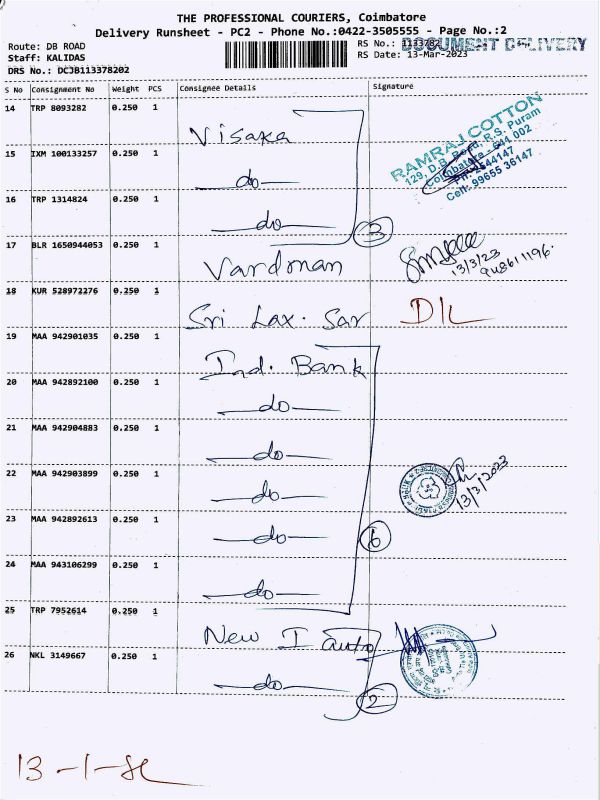 THE PROFESSIONAL COURIERS, Coimbatore
Delivery Runsheet - PC2 - Phone No.:0422-3505555 - Page No.:2
Route: DB ROAD
Staff: KALIDAS
DRS No.: DCJB113378202
RS No.: 1133782
DOCUMENT DELIVERY
RS Date: 13-Mar-2023
S No Consignment No Weight PCS Consignee Details Signature
14 TRP 8093282 0.250 1 Visaka
RAMRAJ COTTON
129, D.B. Road, R.S. Puram
Coimbatore - 641 002
Cell: 99655 36147
15 IXM 100133257 0.250 1 do
16 TRP 1314824 0.250 1 do
3
17 BLR 1650944053 0.250 1 Vardman
13/3/23
18 KUR 528972276 0.250 1 Sri Lax. Sar D/L
19 MAA 942901035 0.250 1 Ind. Bank
20 MAA 942892100 0.250 1 do
21 MAA 942904883 0.250 1 do
22 MAA 942903899 0.250 1 do
13/3/2023
23 MAA 942892613 0.250 1 do
6
24 MAA 943106299 0.250 1 do
25 TRP 7952614 0.250 1 New I auto
26 NKL 3149667 0.250 1 do
2